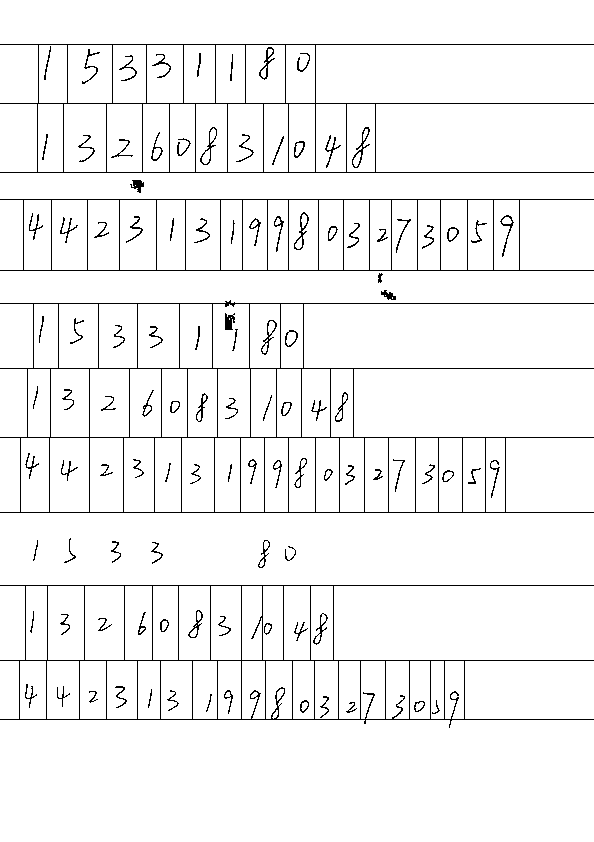 15331180
13260831048
442313199803273059
15331180
13260831048
442313199803273059
153380
13260831048
442313199803273059